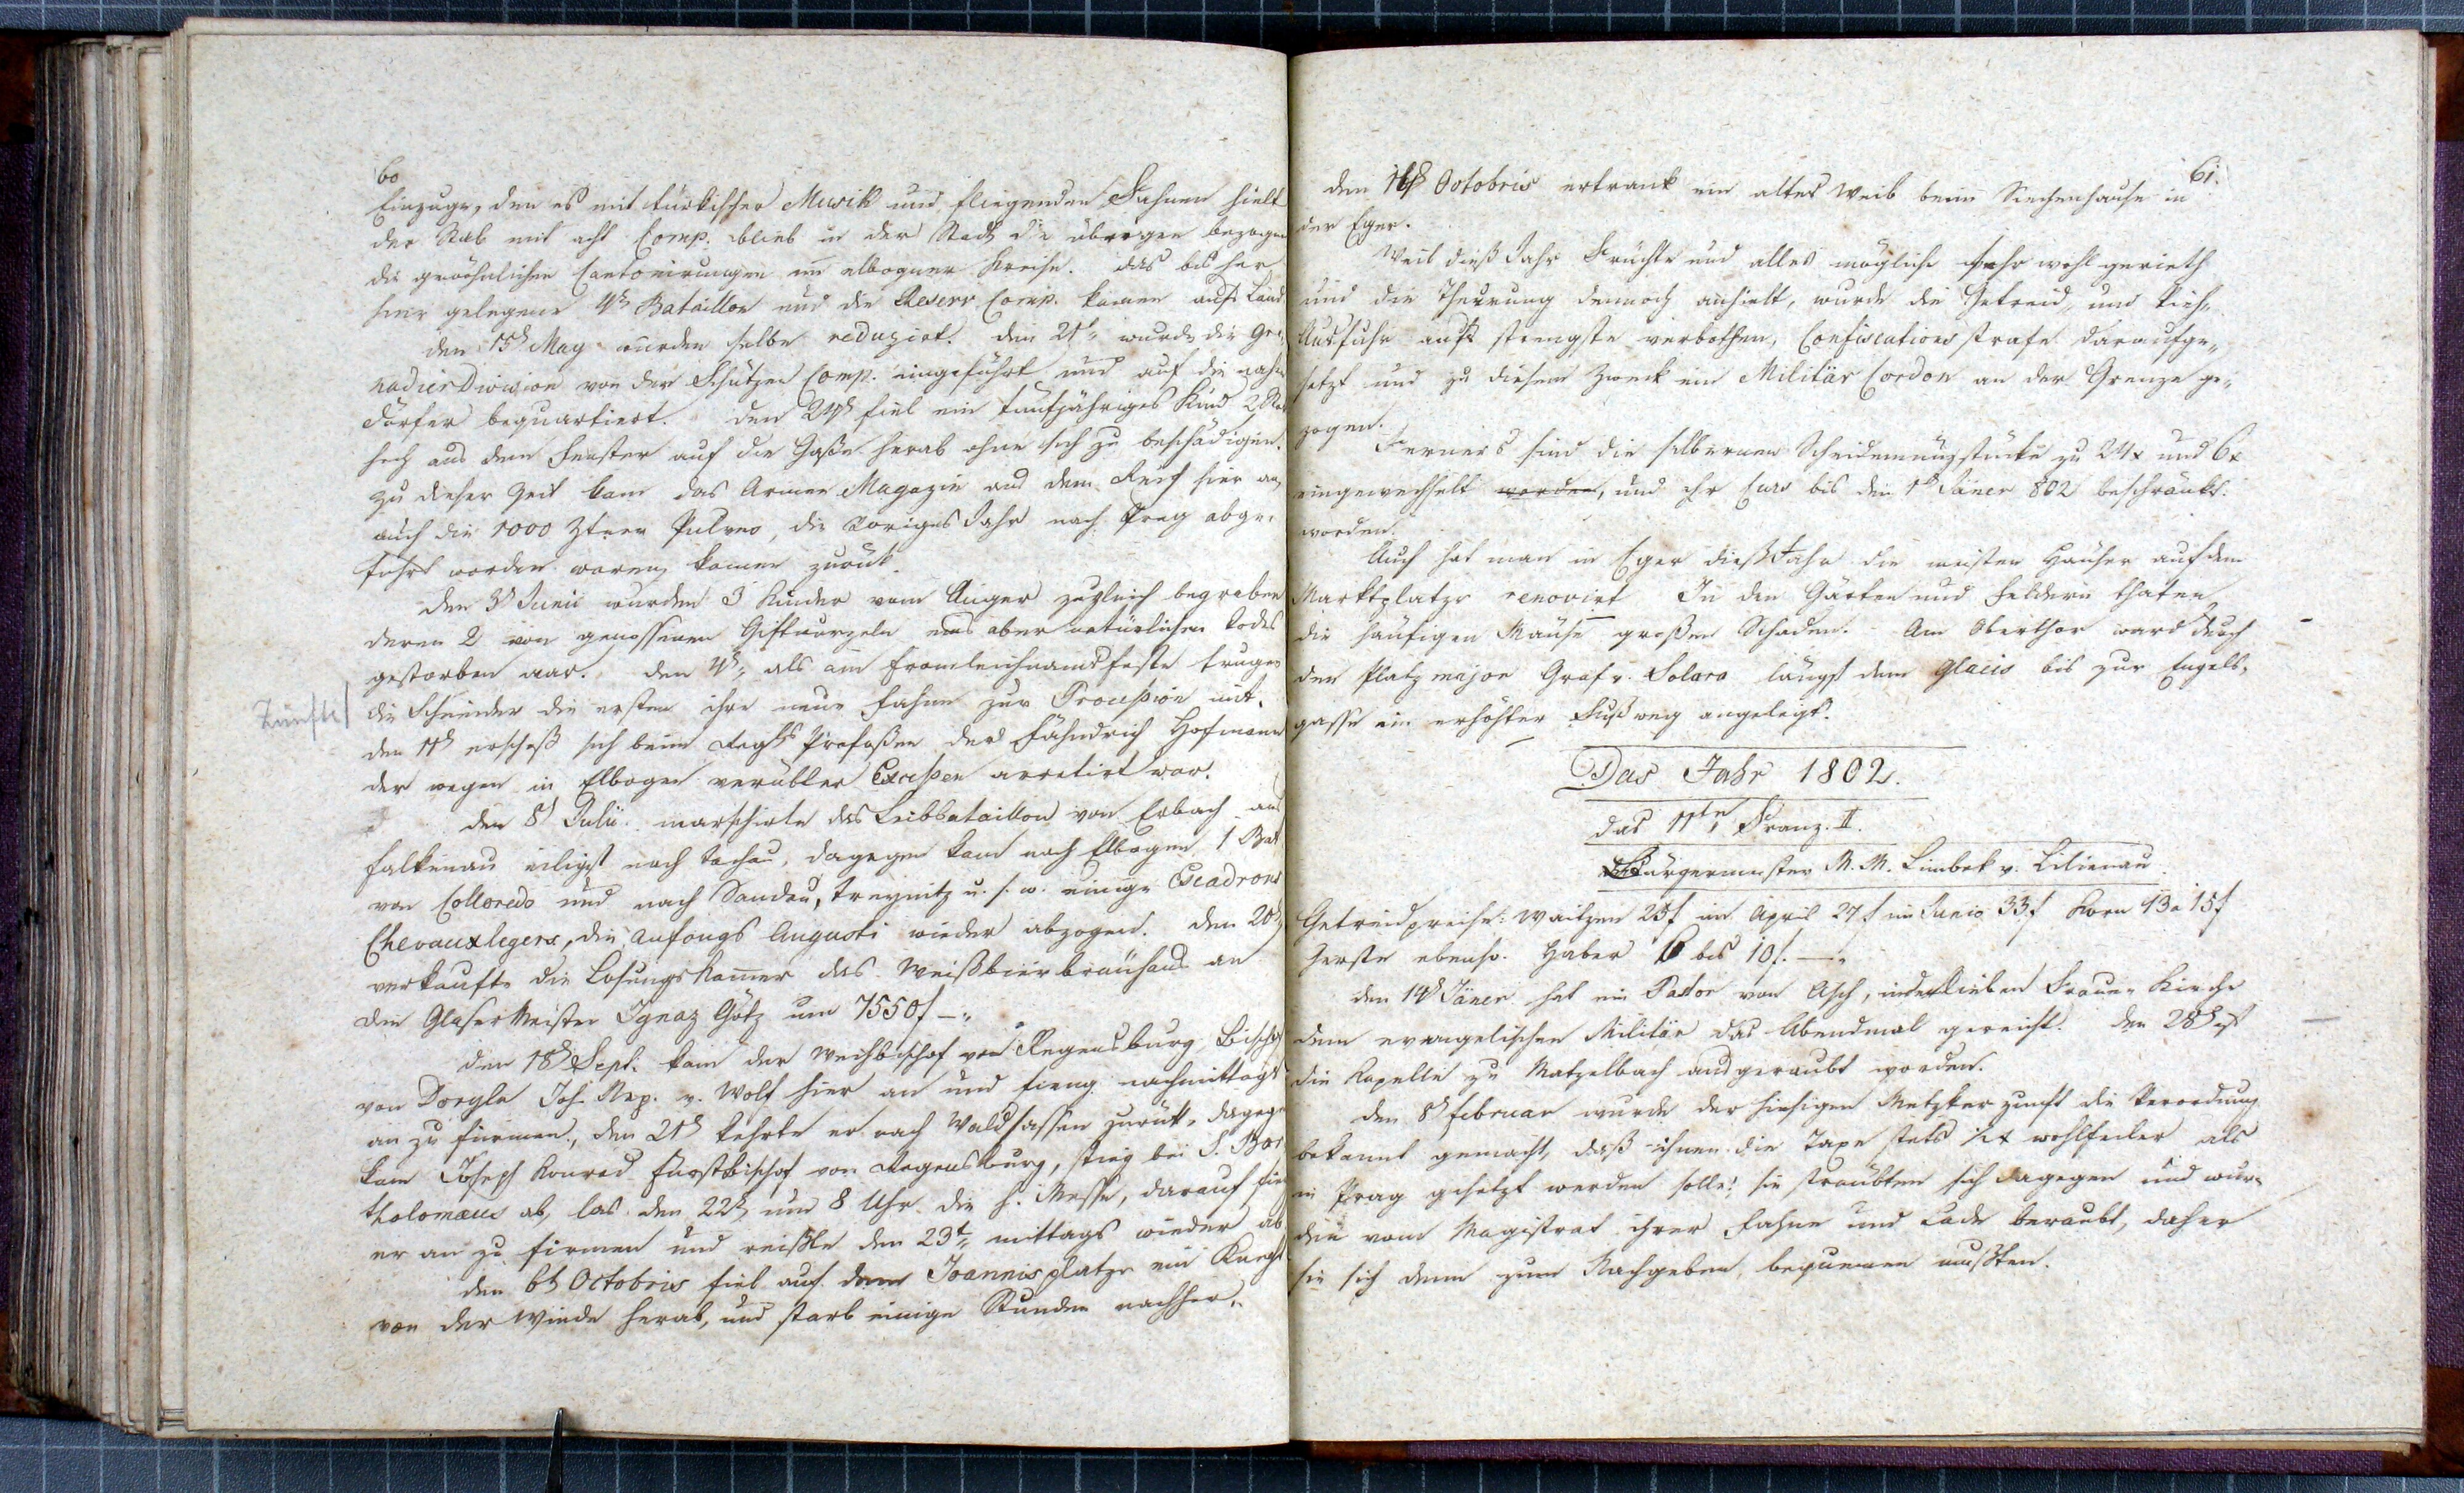 60
Einzuge, den es mit türkischer Musik und fliegenden Fahnen hielt
der Stab mit acht Comp. blieb in der Stadt die übrigen bezogen
die gewöhnlichen Cantonirungen im elbogner Kreise. Das bis her
hier gelegene 4te Bataillon und die Reserv Comp. kamen aufs Land
den 15t May wurden selbe reduzirt. den 21t wurde die Gre-
nadierDivision von der Schützen Comp. eingeführt und auf die nahen
Dörfer bequartiert. den 24t fiel ein fünfjähriges Kind 2 Stok
hoch aus dem Fenster auf die Gaße herab ohne sich zu beschädigen.
Zu dieser Zeit kam das Armee Magazin aus dem Reich hier an,
auch die 1000 Ztner Pulver, die voriges Jahr nach Prag abge-
führt worden waren, kamen zurück.
den 3t Junii wurden 3 Kinder vom Anger zugleich begraben
deren 2 von genossenen Giftwurzeln eins aber natürlichen Todes
gestorben war. den 4t, als am Fronleichnamsfeste trugen
Zünfte
die Schneider die ersten ihre neue Fahne zur Proceßion mit.
den 11t erschoß sich beim Regts Profoßen der Fähndrich Hofmann
der wegen in Elbogen verübter Exceßen arretirt war.
den 8t Julii marschirte das Leibbataillon von Erbach aus
Falkenau eiligst nach Tachau, dagegen kam nach Elbogen 1 Bat
von Colloredo und nach Sandau, Treunitz u. s. w. einige Escadrons
Chevauxlegers, die Anfangs Augusti wieder abzogen. den 20t
verkaufte die Losungskamer das Weißbierbräuhaus an
den Glaser Meister Ignaz Götz um 7550f —„
den 18t Sept. kam der Weihbischof von Regensburg Bischof
von Dorÿla Joh. Nep. v. Wolf hier an und fieng nachmittags
an zu firmen, den 21t kehrte er nach Waldsassen zurück, dagegen
kam Joseph Konrad Fürstbischof von Regensburg, stieg bei S. Bar
tholomæus ab, las den 22t um 8 Uhr die h. Messe, darauf fieng
er an zu firmen und reißte den 23t mittags wieder ab
den 6t Octobris fiel auf dem Joannisplatze ein Knecht
von der Winde herab, und starb einige Stunden nachher.
61.
den 16t Octobris ertrank ein altes Weib beim Siechenhause in
der Eger.
Weil dieß Jahr Früchte und alles mögliche sehr wohl gerieth
und die Theurung dennoch anhielt, wurde die Getreid, und Vieh-
Ausfuhr aufs strengste verbothen, Confiscations strafe daraufge-
setzt und zu diesem Zweck ein Militär Cordon an der Grenze ge-
zogen.
Ferners sind die silbernen Scheidemünzstücke zu 24x und 6x
eingewechselt worden, und ihr Curs bis den 1t Jäner 802 beschränkt
worden.
Auch hat man in Eger dieß Jahr die meisten Häuser auf dem
Marktplatze renovirt In den Gärten und Feldern thaten
die häufigen Mäuse großen Schaden. Am Oberthor ward durch
den Platzmajor Graf v. Solara längst dem Glacis bis zur Engels-
gasse ein erhöhter Fußweg angelegt.
Das Jahr 1802.
das 11te Franz. II.
Bürgermeister M. M. Limbek v. Lilienau.
Getreidpreise: Waitzen 25f im April 27f im Junio 33f Korn 13 a 15f
Gerste ebenso. Haber 6 bis 10f. —„
den 14t Jäner hat ein Pastor von Asch, in der lieben Frauen Kirche
dem evangelischen Militär das Abendmal gereicht. den 28t ist
die Kapelle zu Matzelbach ausgeraubt worden.
den 8t Februar wurde der hiesigen Metzkerzunft die Verordnung
bekannt gemacht, daß ihnen die Taxe stets ½x wohlfeiler als
in Prag gesetzt werden solle; sie sträubten sich dagegen und wur-
den vom Magistrat ihrer Fahne und Lade beraubt, daher
sie sich denn zum Nachgeben bequemen mußten.